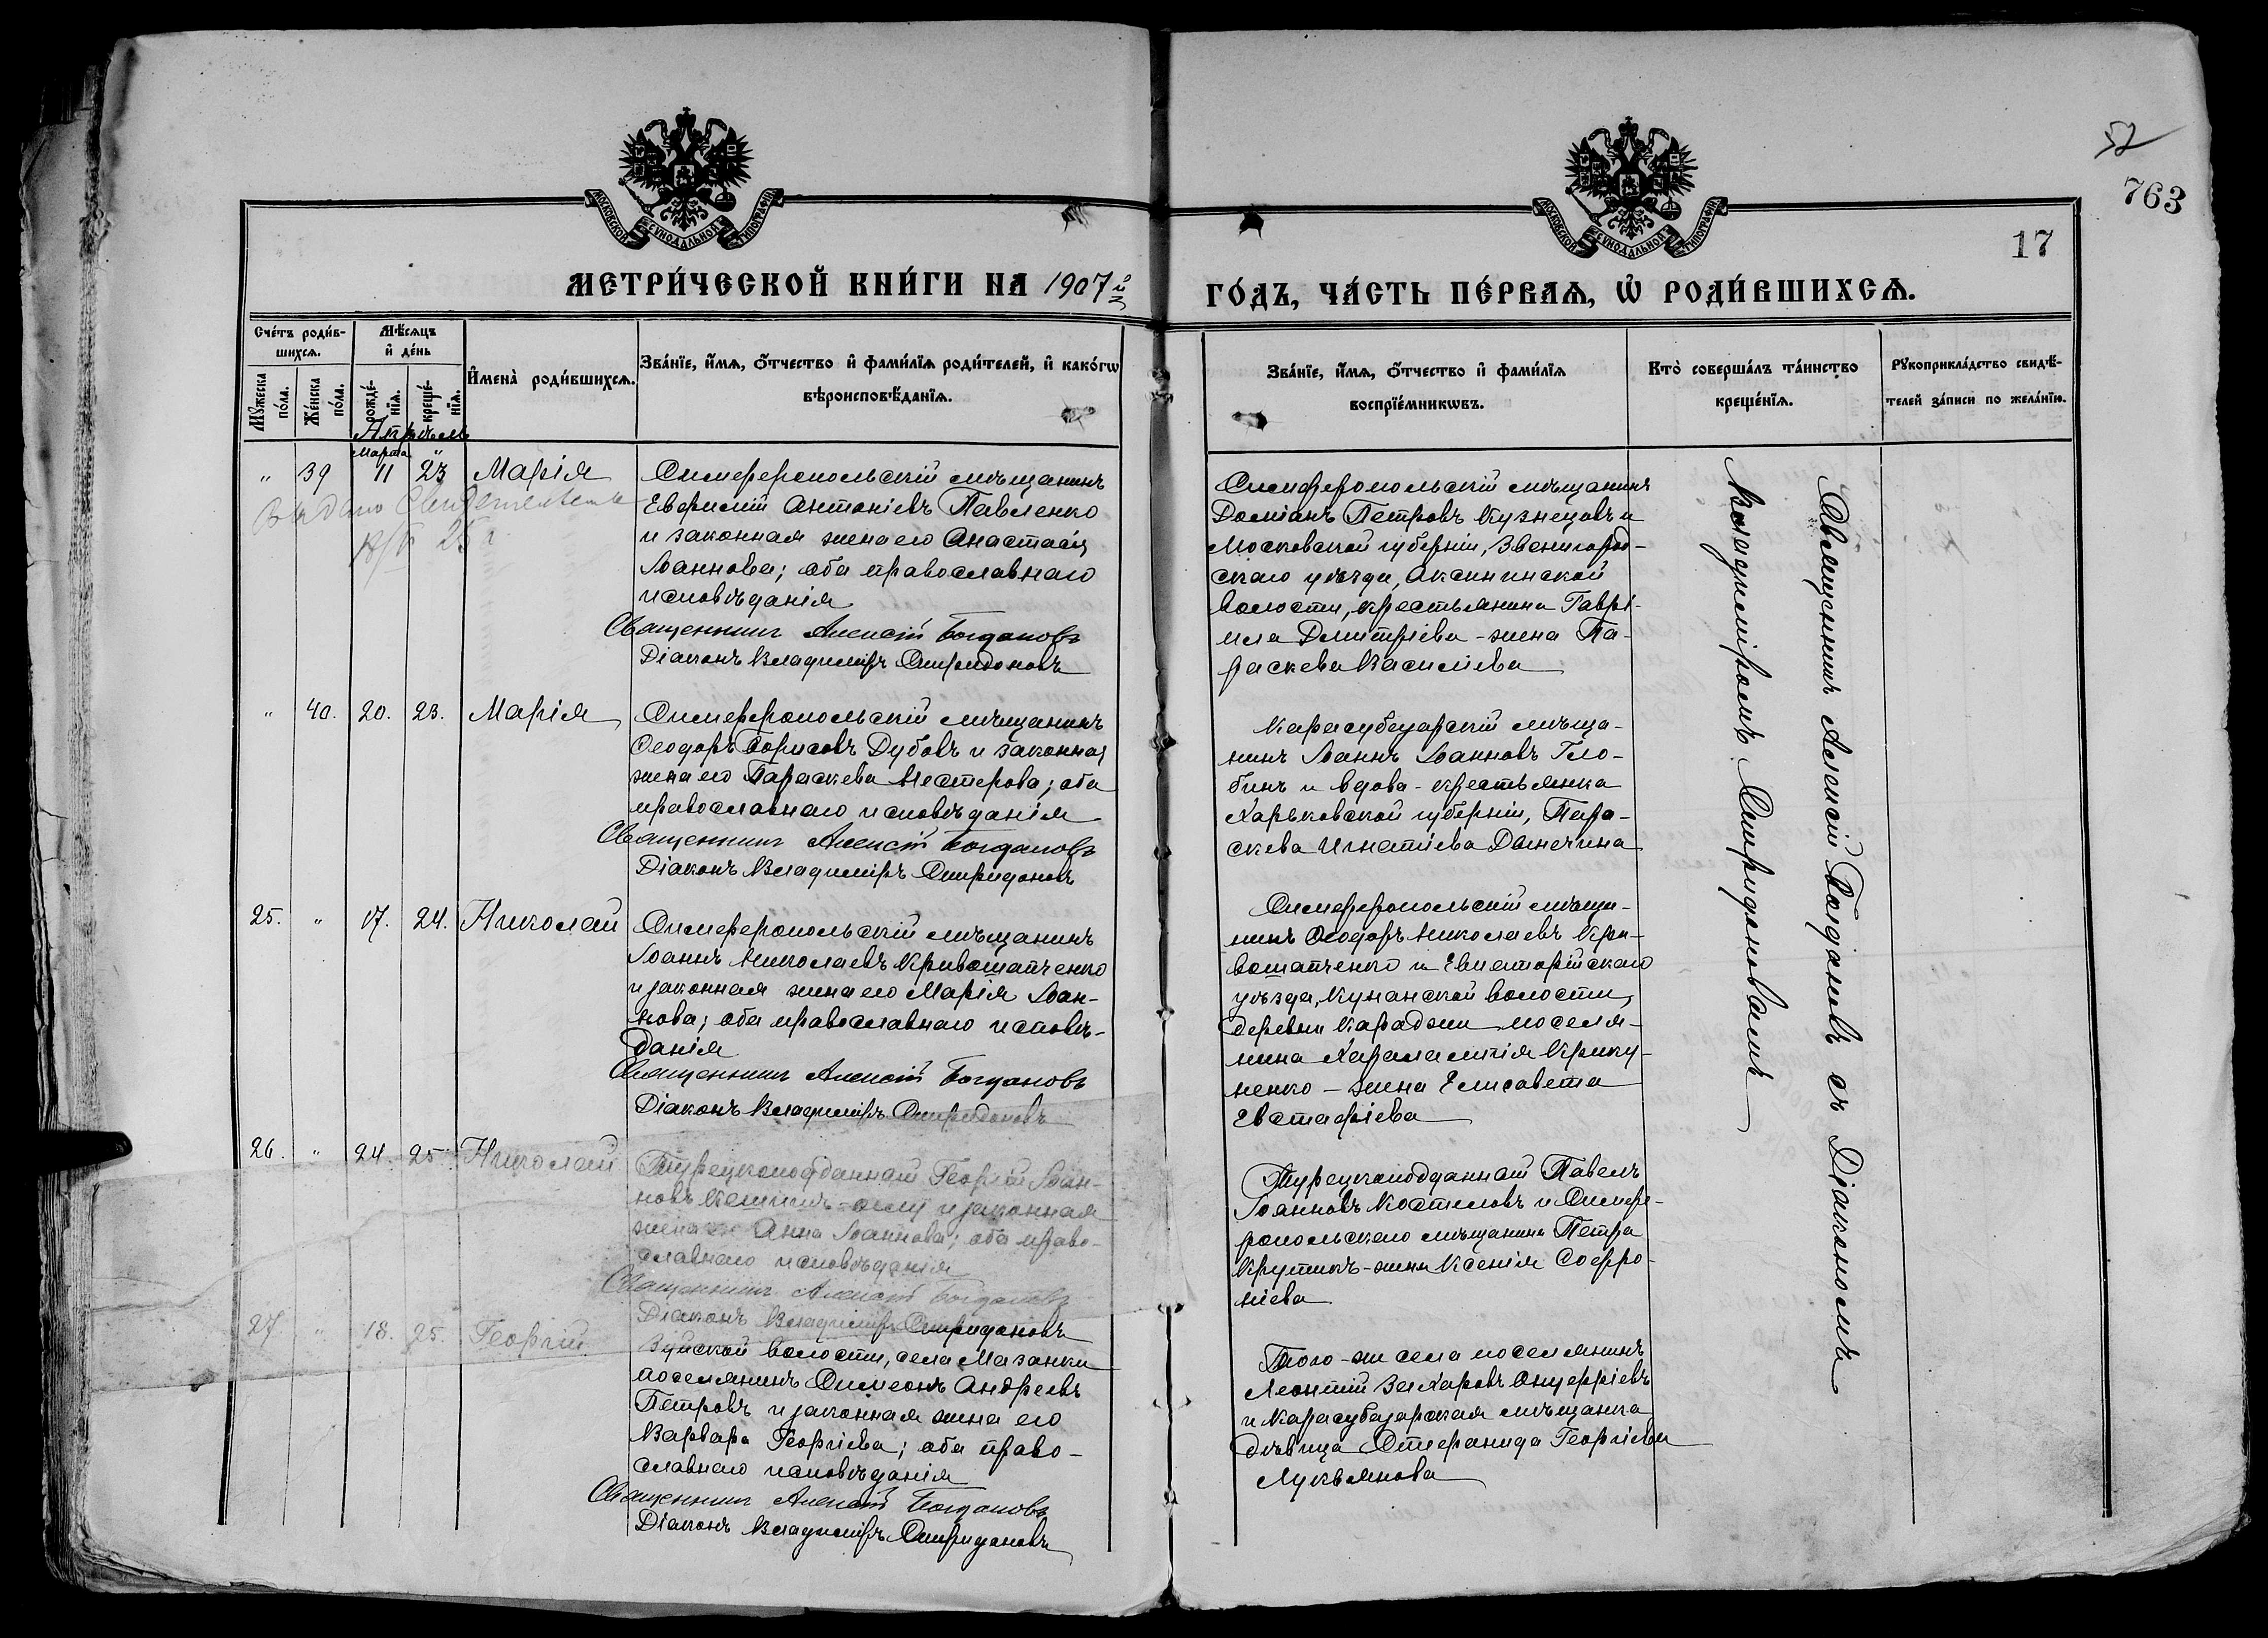 52
763
17
МОСКОВСКОЙ СѴНОДАЛЬНОЙ ТИПОГРАФІИ
МОСКОВСКОЙ СѴНОДАЛЬНОЙ ТИПОГРАФІИ
МЕТРИ́ЧЕСКОЙ КНИ́ГИ НА 1907й
ГО́ДЪ, ЧА́СТЬ ПЕ́РВАѦ, Ѡ҆ РОДИ́ВШИХСѦ.
Сче́тъ роди́в-
шихсѧ.
Мꙋ́жеска по́ла.
Же́нска по́ла.
Мѣ́сѧцъ
и҆ де́нь
рожде́-
нїѧ.
креще́-
нїѧ.
И҆мена̀ роди́вшихсѧ.
Зва́нїе, и҆́мѧ, ѻ҆́тчество и҆ фами́лїѧ роди́телей, и҆ како́гѡ
вѣроисповѣ́данїѧ.
Зва́нїе, и҆́мѧ, ѻ҆́тчество и҆ фами́лїѧ
воспрїе́мникѡвъ.
Кто̀ соверша́лъ та́инство
креще́нїѧ.
Рꙋкоприкла́дство свидѣ́-
телей за́писи по жела́нїю.
Апрѣль
Марта "
" 39 11 23 Марія
Выдано Свидетельство
25 г
Симферопольскій мѣщанинъ
Евфимій Антоніевъ Павленко
и законная жена его Анастасія
Іоаннова; оба православнаго
исповѣданія
Священникъ Алексій Богдановъ
Діаконъ Владиміръ Спиридоновъ
Симферопольскій мѣщанинъ
Доміанъ Петровъ Кузнецовъ и
Московской губерніи, Звенигород-
скаго уѣзда, Аксининской
волости, крестьянина Гаврі-
ила Димитріева - жена Па-
раскева Василіева
" 40. 20. 23. Марія
Симферопольскій мѣщанинъ
Ѳеодоръ Борисовъ Дубовъ и законная
жена его Параскева Нестерова; оба
православнаго исповѣданія
Священникъ Алексій Богдановъ
Діаконъ Владиміръ Спиридоновъ
Карасубазарскій мѣща-
нинъ Іоаннъ Іоанновъ Гло-
бинъ и вдова - крестьянка
Харьковской губерніи, Пара-
скева Игнатіева
25. " 17. 24. Николай
Симферопольскій мѣщанинъ
Іоаннъ Николаевъ Кривошапченко
и законная жена его Марія Іоан-
нова; оба православнаго исповѣ-
данія
Священникъ Алексій Богдановъ
Діаконъ Владиміръ Спиридоновъ
Симферопольскій мѣща-
нинъ Ѳеодоръ Николаевъ Кри-
вошапченко и Евпаторійскаго
уѣзда, Кунанской волости,
деревни Караджи поселя-
нина Харалампія Крику-
ненко - жена Елисавета
Евстафіева
26. " 24. 25. Николай
Турецкоподданный Георгій Іоан-
новъ и законная
жена его Анна Іоаннова; оба право-
славнаго исповѣданія
Священникъ Алексій Богдановъ
Діаконъ Владиміръ Спиридоновъ
Турецкоподданный Павелъ
Іоанновъ Костиловъ и Симфе-
ропольскаго мѣщанина Петра
Крутикъ - жена Ксенія Софро-
ніева
27 " 18. 25. Георгій
Зуйской волости, села Мазанки
поселянинъ Симеонъ Андреевъ
Петровъ и законная жена его
Варвара Георгіева; оба право-
славнаго исповѣданія
Священникъ Алексій Богдановъ
Діаконъ Владиміръ Спиридоновъ
Того-же села поселянинъ
Леонтій Захаровъ Онуфріевъ
и Карасубазарская мѣщанка
дѣвица Стефанида Георгіева
Лукьянова
Священникъ Алексій Богдановъ съ Діакономъ
Владиміромъ Спиридоновымъ